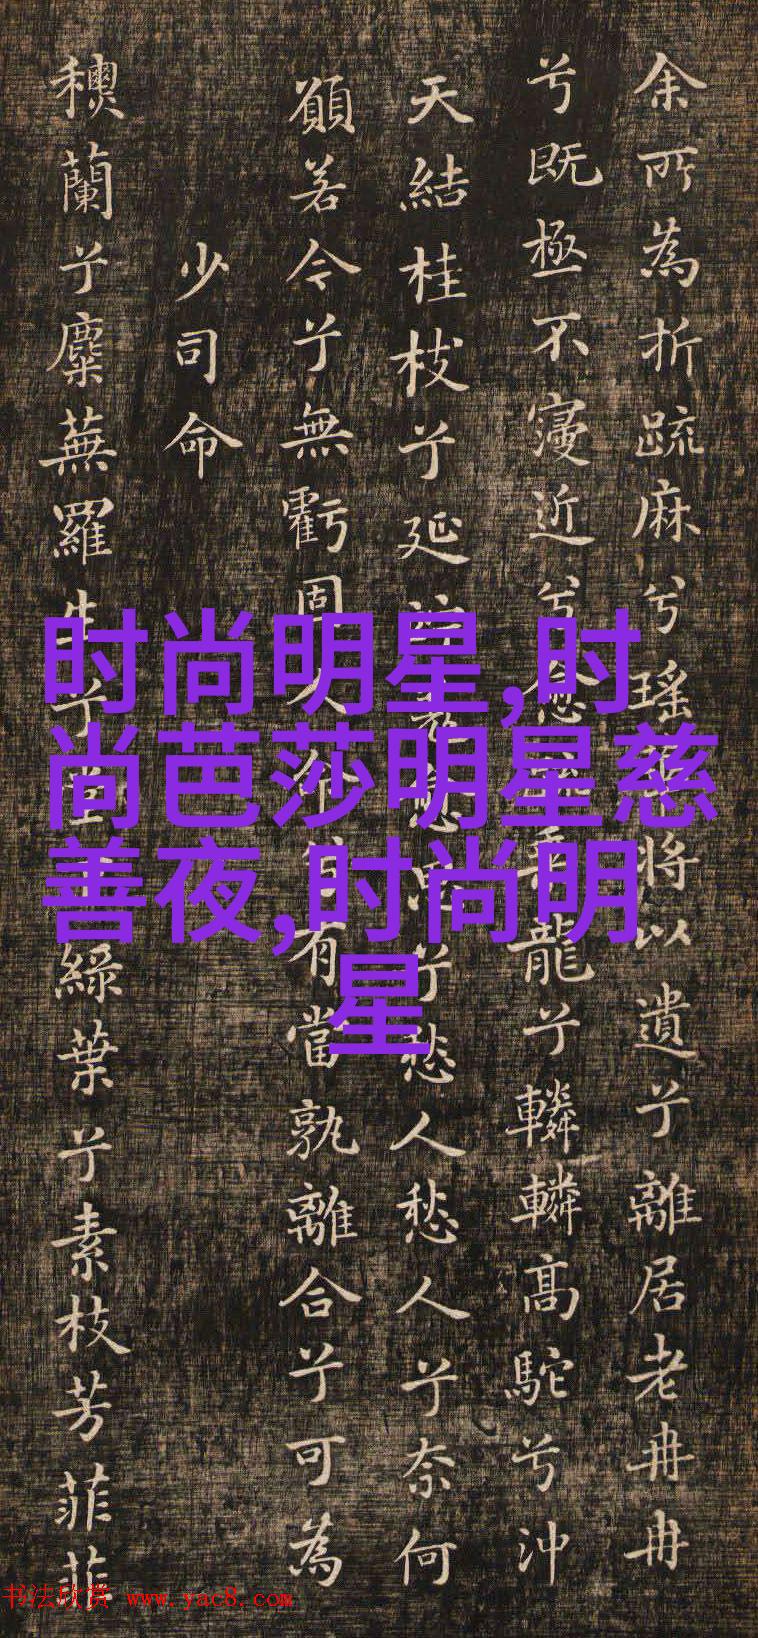 余所為折䟽麻兮瑶將以遺兮離居老冉冉
兮既極不寖近兮愈乘龍兮轔轔高駝兮沖
天結桂枝兮延思兮愁人愁人兮奈何
願若今兮無虧固人命兮有當孰離合兮可為
少司命
蘭兮麋蕪羅生兮堂綠葉兮素枝芳菲菲
时尚明星,时
尚芭莎明星慈
善夜,时尚明
星
书法欣赏 www.yac8.com